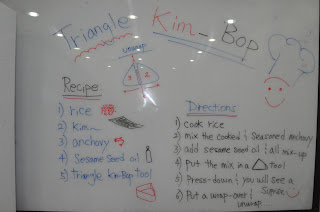 Triangle Kim-Bop
unwrap
1 2 3
Recipe
1) rice
2) kim
3) anchovy
4) Sesame seed oil
5) triangle kim-Bop tool
Directions
1) cook rice
2) mix the cooked & seasoned anchovy
3) add sesame seed oil & all mix-up
4) put the mix in a tool
5) press-down & you will see a
surprise
6) Put a wrap-over &
unwrap